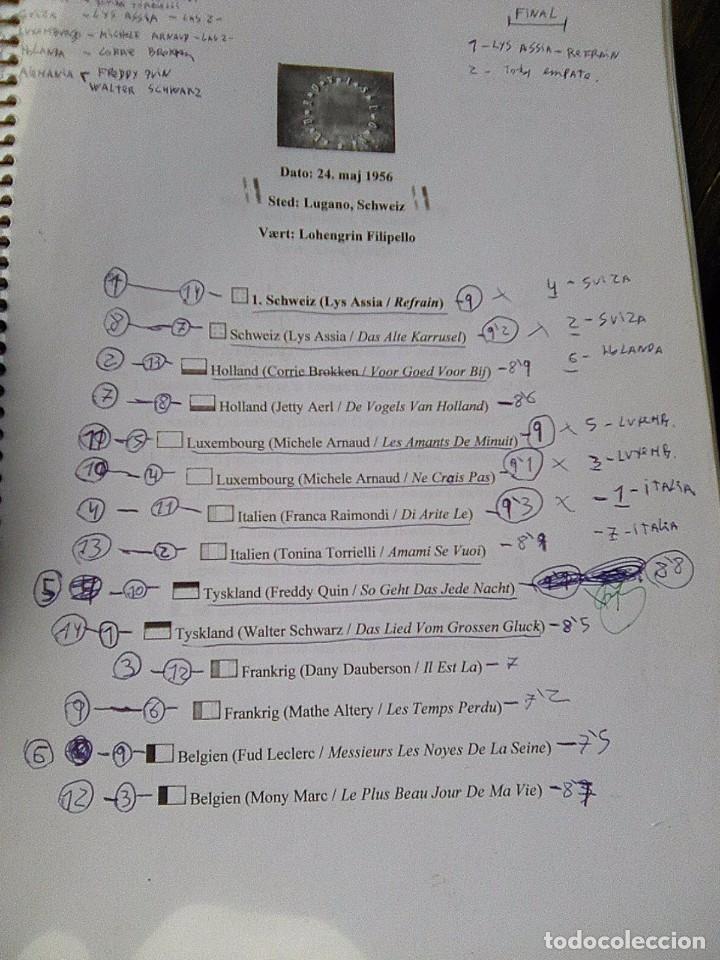 SUIZA - LYS ASSIA - LAS 2-
LUXEMBURGO - MICHELE ARNAUD - LAS 2-
HOLANDA - CORRIE BROKKEN
ALEMANIA FREDDY QUIN
WALTER SCHWARZ
FINAL
1 - LYS ASSIA - REFRAIN
2 - Todos empate.
Dato: 24. maj 1956
Sted: Lugano, Schweiz
Vært: Lohengrin Filipello
14 - 1. Schweiz (Lys Assia / Refrain) - 9 X 4 - SUIZA
8 - 7 - Schweiz (Lys Assia / Das Alte Karrusel) - 9'2 X 2 - SUIZA
2 - 13 - Holland (Corrie Brokken / Voor Goed Voor Bij) - 8'9 6 - HOLANDA
7 - 8 - Holland (Jetty Aerl / De Vogels Van Holland) - 8'6
11 - 5 - Luxembourg (Michele Arnaud / Les Amants De Minuit) - 9 X 5 - LUXEMB.
10 - 4 - Luxembourg (Michele Arnaud / Ne Crois Pas) - 9'1 X 3 - LUXEMB.
4 - 11 - Italien (Franca Raimondi / Di Arite Le) - 9'3 X - 1 - ITALIA
13 - 2 - Italien (Tonina Torrielli / Amami Se Vuoi) - 8'9 - 7 - ITALIA
5 - 10 - Tyskland (Freddy Quin / So Geht Das Jede Nacht) - 8'8
14 - 1 - Tyskland (Walter Schwarz / Das Lied Vom Grossen Gluck) - 8'5
3 - 12 - Frankrig (Dany Dauberson / Il Est La) - 7
9 - 6 - Frankrig (Mathe Altery / Les Temps Perdu) - 7'2
6 - 9 - Belgien (Fud Leclerc / Messieurs Les Noyes De La Seine) - 7'5
12 - 3 - Belgien (Mony Marc / Le Plus Beau Jour De Ma Vie) - 8'
todocoleccion